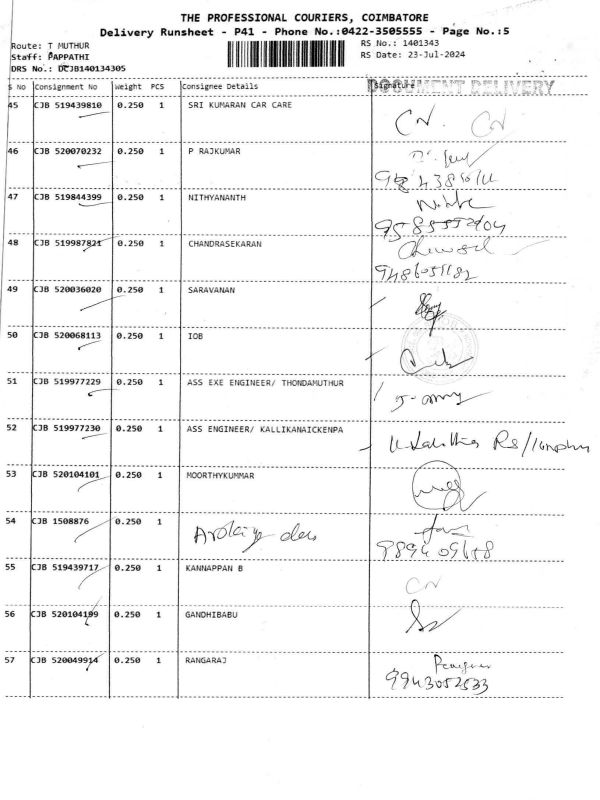 THE PROFESSIONAL COURIERS, COIMBATORE
Delivery Runsheet - P41 - Phone No.:0422-3505555 - Page No.:5
Route: T MUTHUR RS No.: 1401343
Staff: PAPPATHI RS Date: 23-Jul-2024
DRS No.: DCJB140134305
S No Consignment No Weight PCS Consignee Details Signature
DOCUMENT DELIVERY
45 CJB 519439810 0.250 1 SRI KUMARAN CAR CARE
46 CJB 520070232 0.250 1 P RAJKUMAR
47 CJB 519844399 0.250 1 NITHYANANTH
9585552904
48 CJB 519987821 0.250 1 CHANDRASEKARAN
49 CJB 520036020 0.250 1 SARAVANAN
50 CJB 520068113 0.250 1 IOB
51 CJB 519977229 0.250 1 ASS EXE ENGINEER/ THONDAMUTHUR
52 CJB 519977230 0.250 1 ASS ENGINEER/ KALLIKANAICKENPA
53 CJB 520104101 0.250 1 MOORTHYKUMMAR
54 CJB 1508876 0.250 1
55 CJB 519439717 0.250 1 KANNAPPAN B
56 CJB 520104199 0.250 1 GANDHIBABU
57 CJB 520049914 0.250 1 RANGARAJ
9943052533